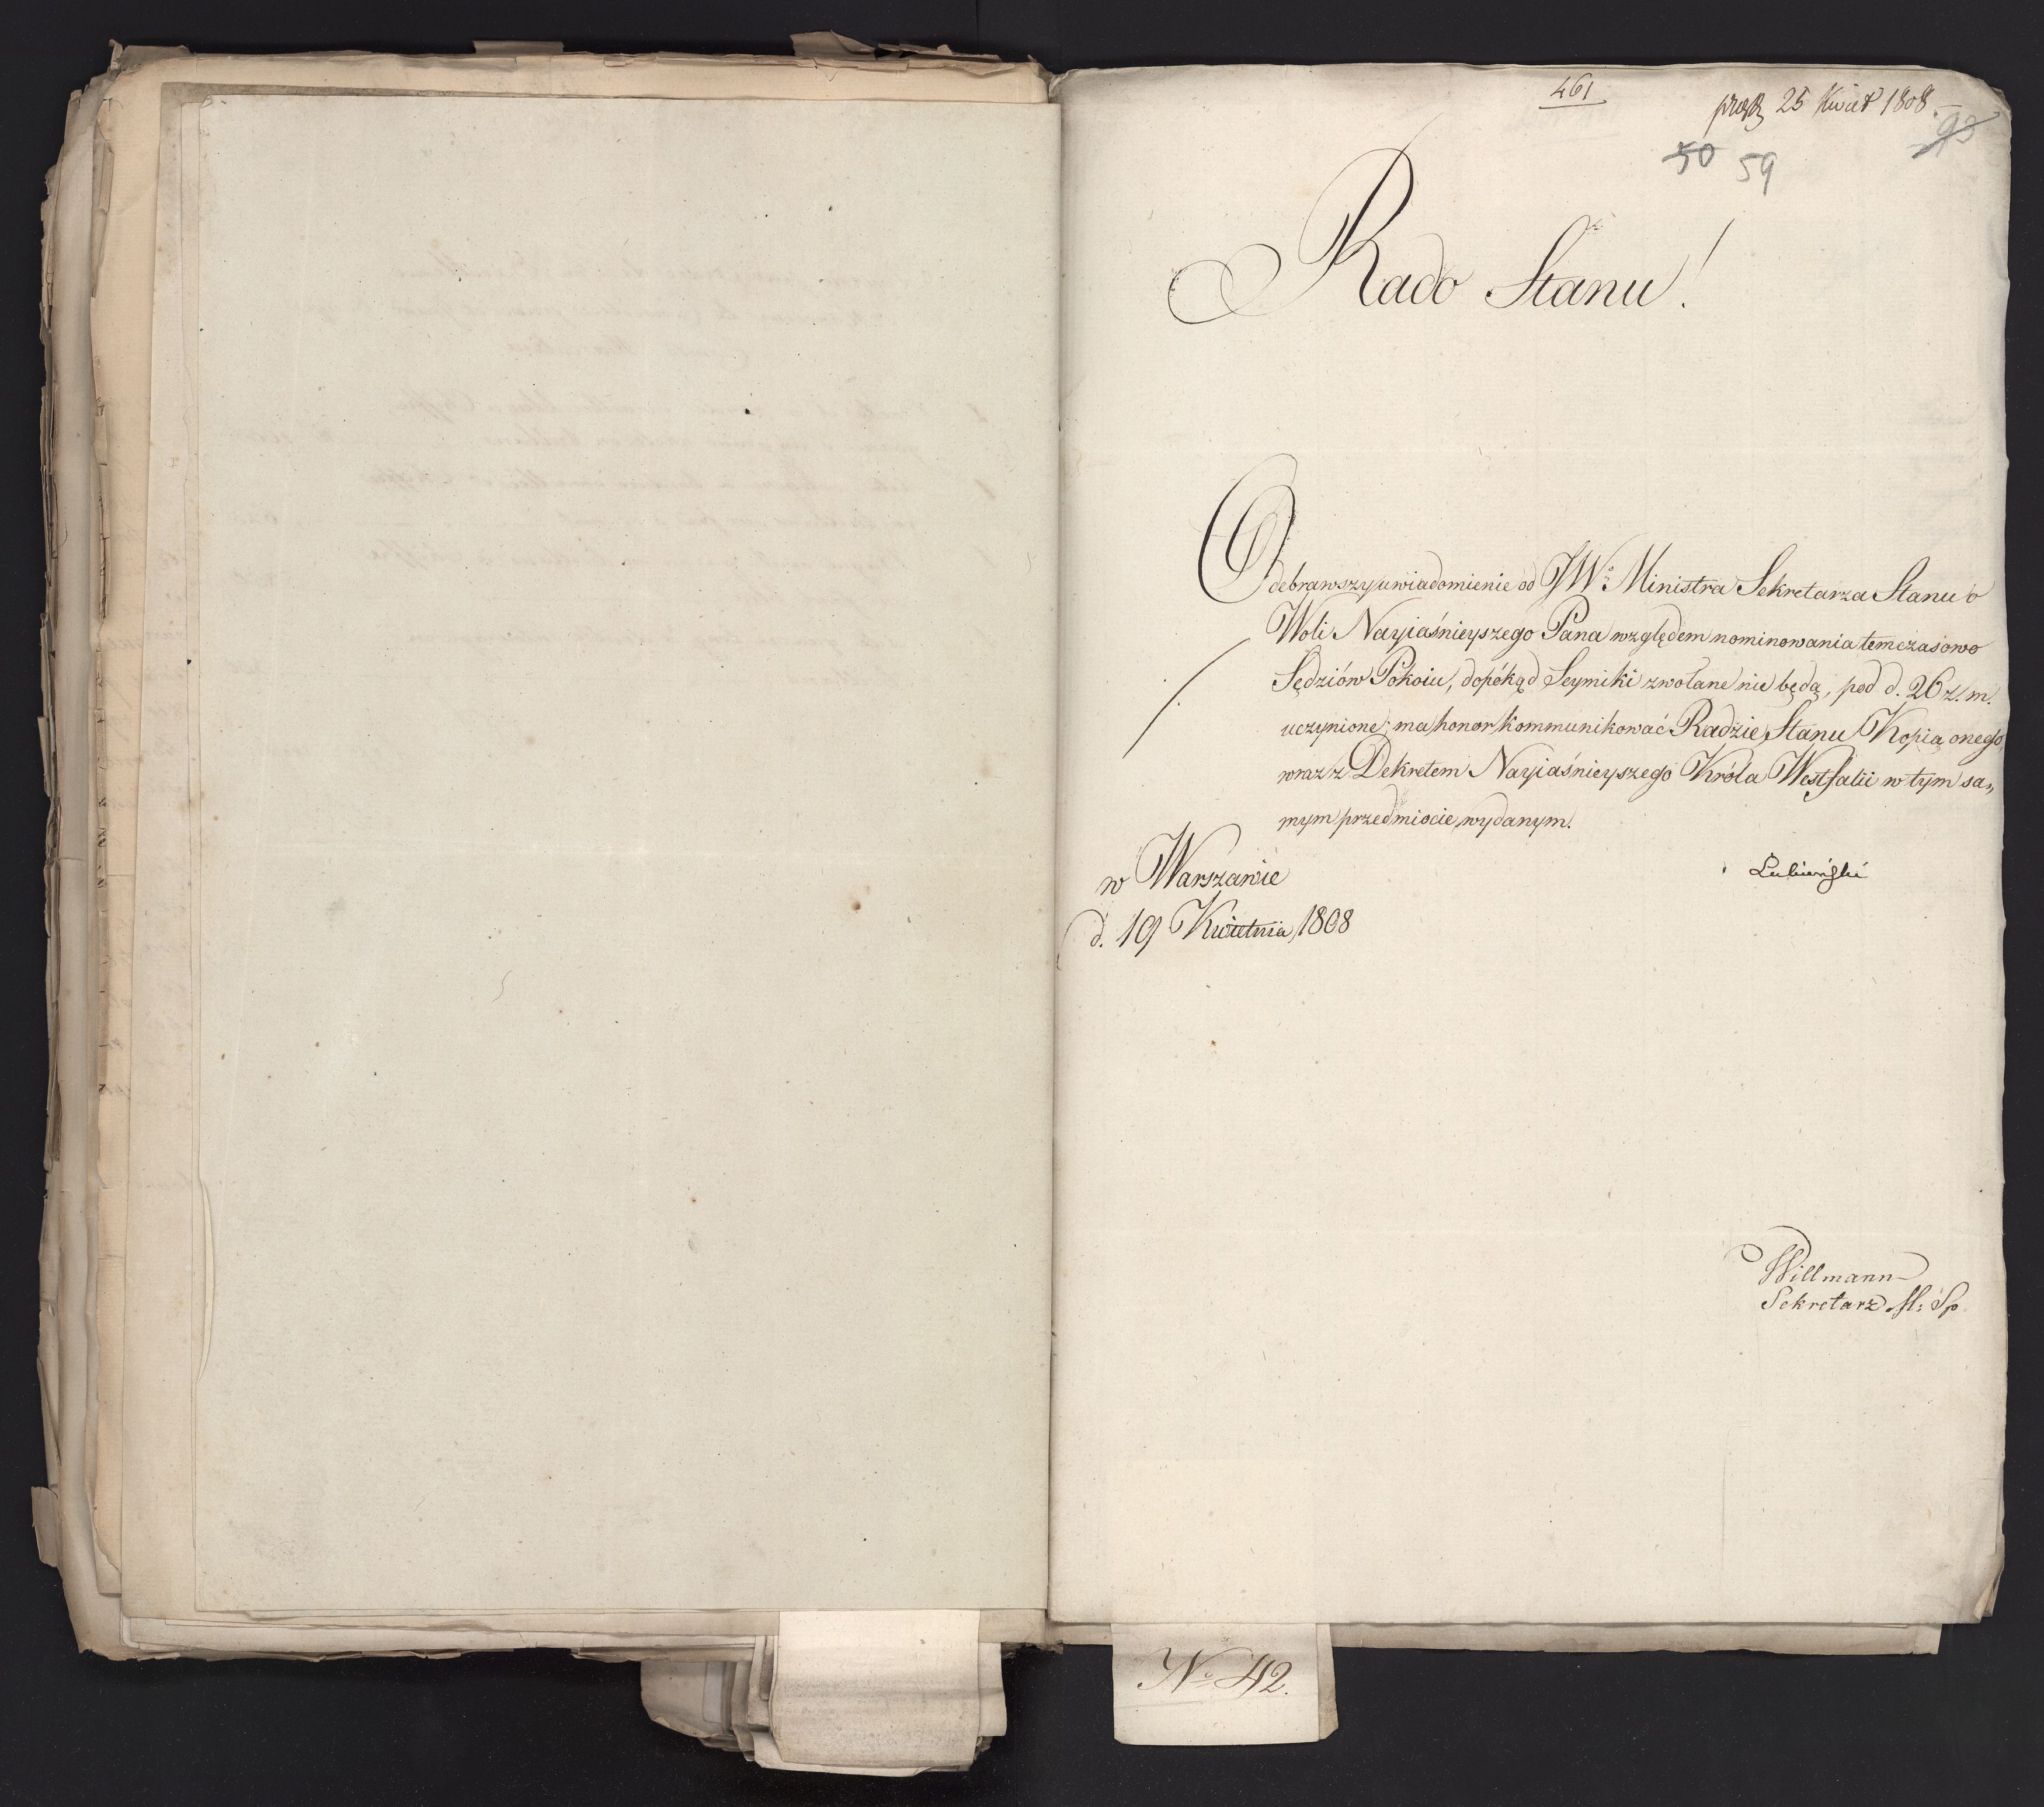 461
25 Kwiet 1808
93
50 59
Rado Stanu!
Odebrawszy uwiadomienie od JWº Ministra Sekretarza Stanu o
Woli Nayiaśnieyszego Pana względem nominowania temczasowo
Sędziów Pokoiu, dopókąd Seymiki zwołane nie będą, pod d. 26 z. m.
uczynione; ma honor kommunikować Radzie Stanu Kopią onego,
wraz z Dekretem Nayiaśnieyszego Króla Westfalii w tym sa„
mym przedmiocie wydanym.
w Warszawie
Łubieński
d. 19 Kwietnia 1808
Willmann
Sekretarz M: Sp.
Nº 42.